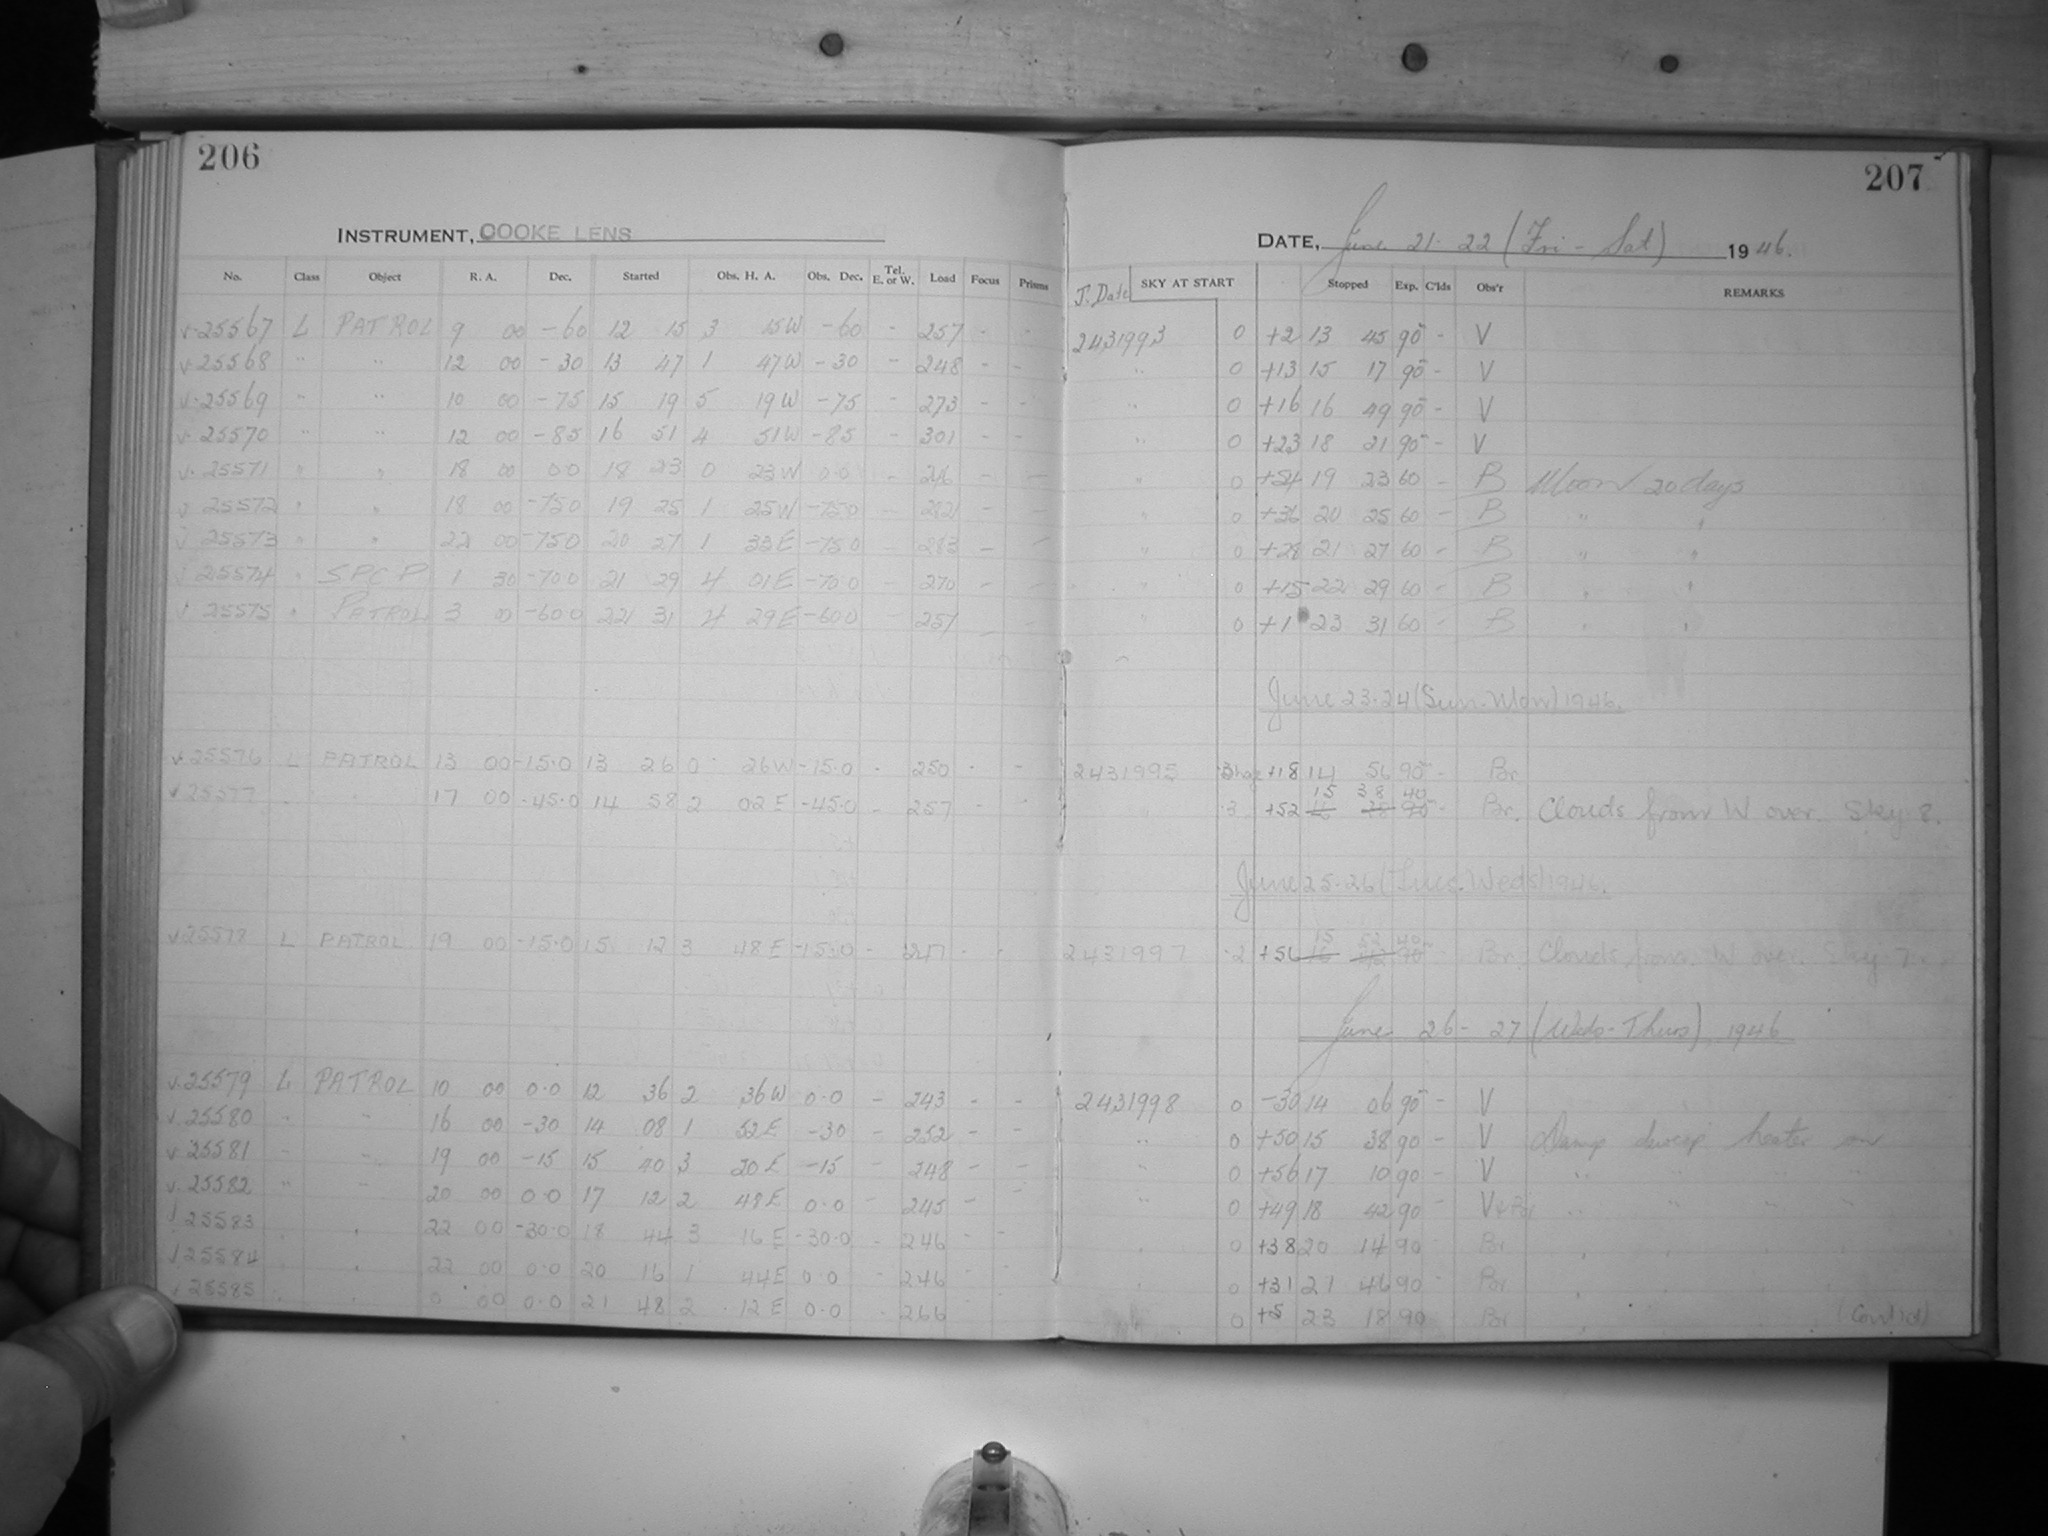 206
207
INSTRUMENT, COOKE LENS
DATE, June 21-22 (Fri - Sat) 1946.
No. Class Object R. A. Dec. Started Obs. H. A. Obs. Dec. Tel. E. or W. Load Focus Prisms J. Date SKY AT START Stopped Exp. C'lds Obs'r REMARKS
v 25567 L PATROL 9 00 -60 12 15 3 15W -60 - 257 - - 2431993 0 +2 13 45 90 - V
v 25568 " " 12 00 -30 13 47 1 47W -30 - 248 - - " 0 +13 15 17 90 - V
v 25569 " " 10 00 -75 15 19 5 19W -75 - 273 - - " 0 +16 16 49 90 - V
v 25570 " " 12 00 -85 16 51 4 51W -85 - 301 - - " 0 +23 18 21 90 - V
v 25571 " " 18 00 0.0 18 23 0 23W 0.0 - 246 - - " 0 19 23 60 - B Moon 20 days
v 25572 " " 18 00 -75.0 19 25 1 25W -75.0 - 282 - - " 0 +36 20 25 60 - B " "
v 25573 " " 22 00 -75.0 20 27 1 33E -75.0 - 283 - - " 0 +28 21 27 60 - B " "
v 25574 " SPC P 1 30 -70.0 21 29 4 01E -70.0 - 270 - - " 0 +15 22 29 60 - B " "
v 25575 " PATROL 3 00 -60.0 22 31 4 29E -60.0 - 257 - - " 0 +1 23 31 60 - B " "
June 23-24 (Sun-Mon) 1946.
v 25576 L PATROL 13 00 -15.0 13 26 0 26W -15.0 - 250 - - 2431995 +18 14 56 90 - Br
15 38 40
v 25577 " " 17 00 -45.0 14 58 2 02E -45.0 - 257 " .3 +52 16 28 90 - Br. Clouds from W over. Sky 8.
June 25-26 (Tues-Weds) 1946.
15 52 40
v 25578 L PATROL 19 00 -15.0 15 12 3 48E -15.0 - 247 - - 2431997 .2 +56 16 42 90 - Br. Clouds from W over. Sky 7
June 26-27 (Weds-Thurs), 1946
v 25579 L PATROL 10 00 0.0 12 36 2 36W 0.0 - 243 - - 2431998 0 -30 14 06 90 - V
v 25580 " " 16 00 -30 14 08 1 52E -30 - 252 - - " 0 +50 15 38 90 - V Damp dewcap heater on
v 25581 " " 19 00 -15 15 40 3 20E -15 - 248 - - " 0 +56 17 10 90 - V " " " "
v 25582 " " 20 00 0.0 17 12 2 48E 0.0 - 245 - - " 0 +49 18 42 90 - V & Br " " " "
v 25583 " " 22 00 -30.0 18 44 3 16E -30.0 - 246 - - " 0 +38 20 14 90 - Br " " "
v 25584 " " 22 00 0.0 20 16 1 44E 0.0 - 246 - - " 0 +31 21 46 90 - Br " " "
v 25585 " " 0 00 0.0 21 48 2 12E 0.0 - 266 0 +5 23 18 90 Br " (Cont'd)